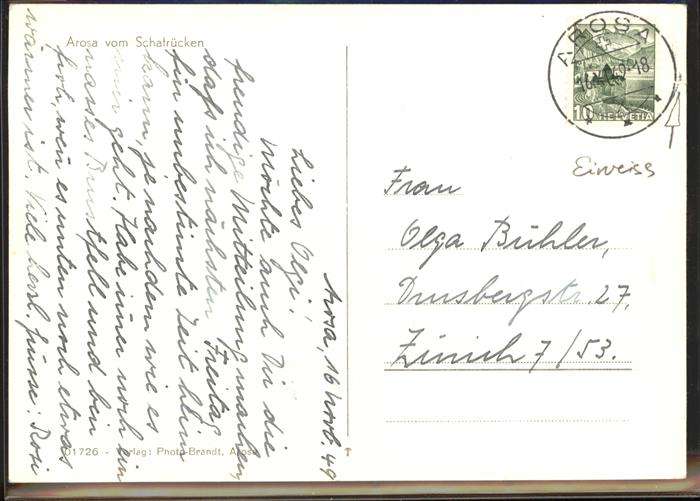 Arosa vom Schafrücken
Arosa, 16 Nov. 49
Liebes Olgi!
Möchte auch Dir die
freudige Mitteilung machen,
daß ich nächsten Freitag
für unbestimte Zeit heim
kann, je nachdem wie es
mir geht. Habe imer noch ein
nasses Brustfell und bin
froh, wen es unten noch etwas
wärmer ist. Viele herzl. Grüsse: Rosi
01726 - Verlag: Photo-Brandt, Arosa
AROSA
-18
10 HELVETIA
Eiweiss
Frau
Olga Bühler,
Drusbergstr. 27,
Zürich 7/53.